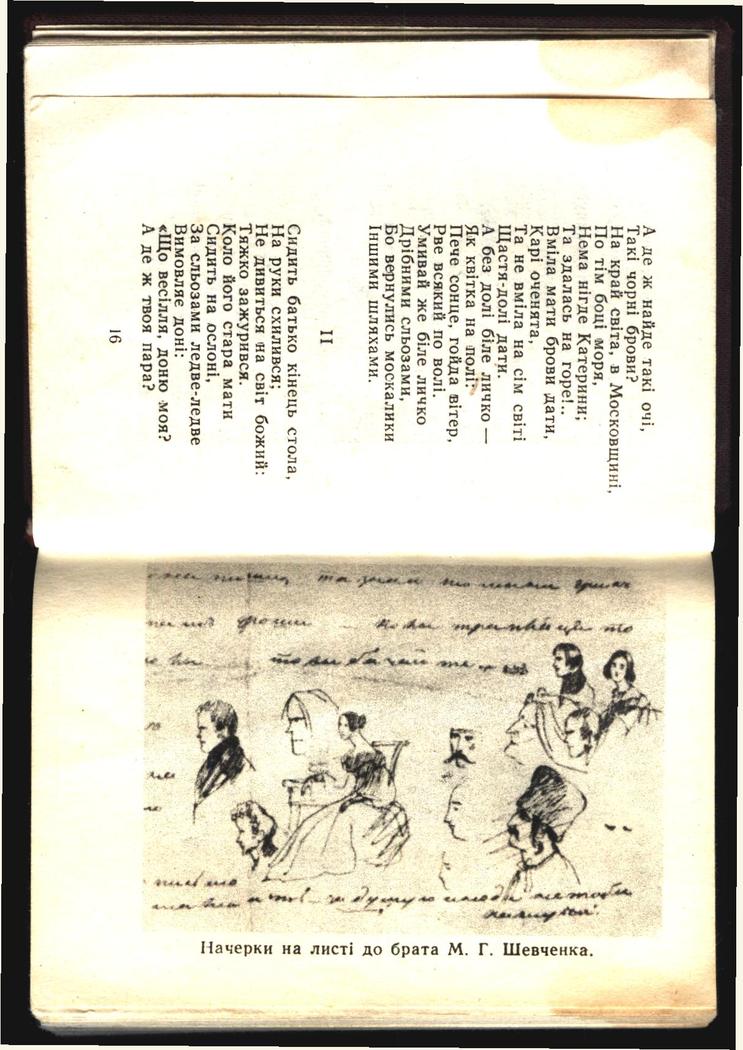 А де ж найде такі очі,
Такі чорні брови?
На край світа, в Московщині,
По тім боці моря,
Нема нігде Катерини;
Та здалась на горе!..
Вміла мати брови дати,
Карі оченята,
Та не вміла на сім світі
Щастя-долі дати.
А без долі біле личко —
Як квітка на полі:
Пече сонце, гойда вітер,
Рве всякий по волі.
Умивай же біле личко
Дрібними сльозами,
Бо вернулись москалики
Іншими шляхами.
II
Сидить батько кінець стола,
На руки схилився;
Не дивиться на світ божий:
Тяжко зажурився.
Коло його стара мати
Сидить на ослоні,
За сльозами ледве-ледве
Вимовляє доні:
«Що весілля, доню моя?
А де ж твоя пара?
16
Начерки на листі до брата М. Г. Шевченка.